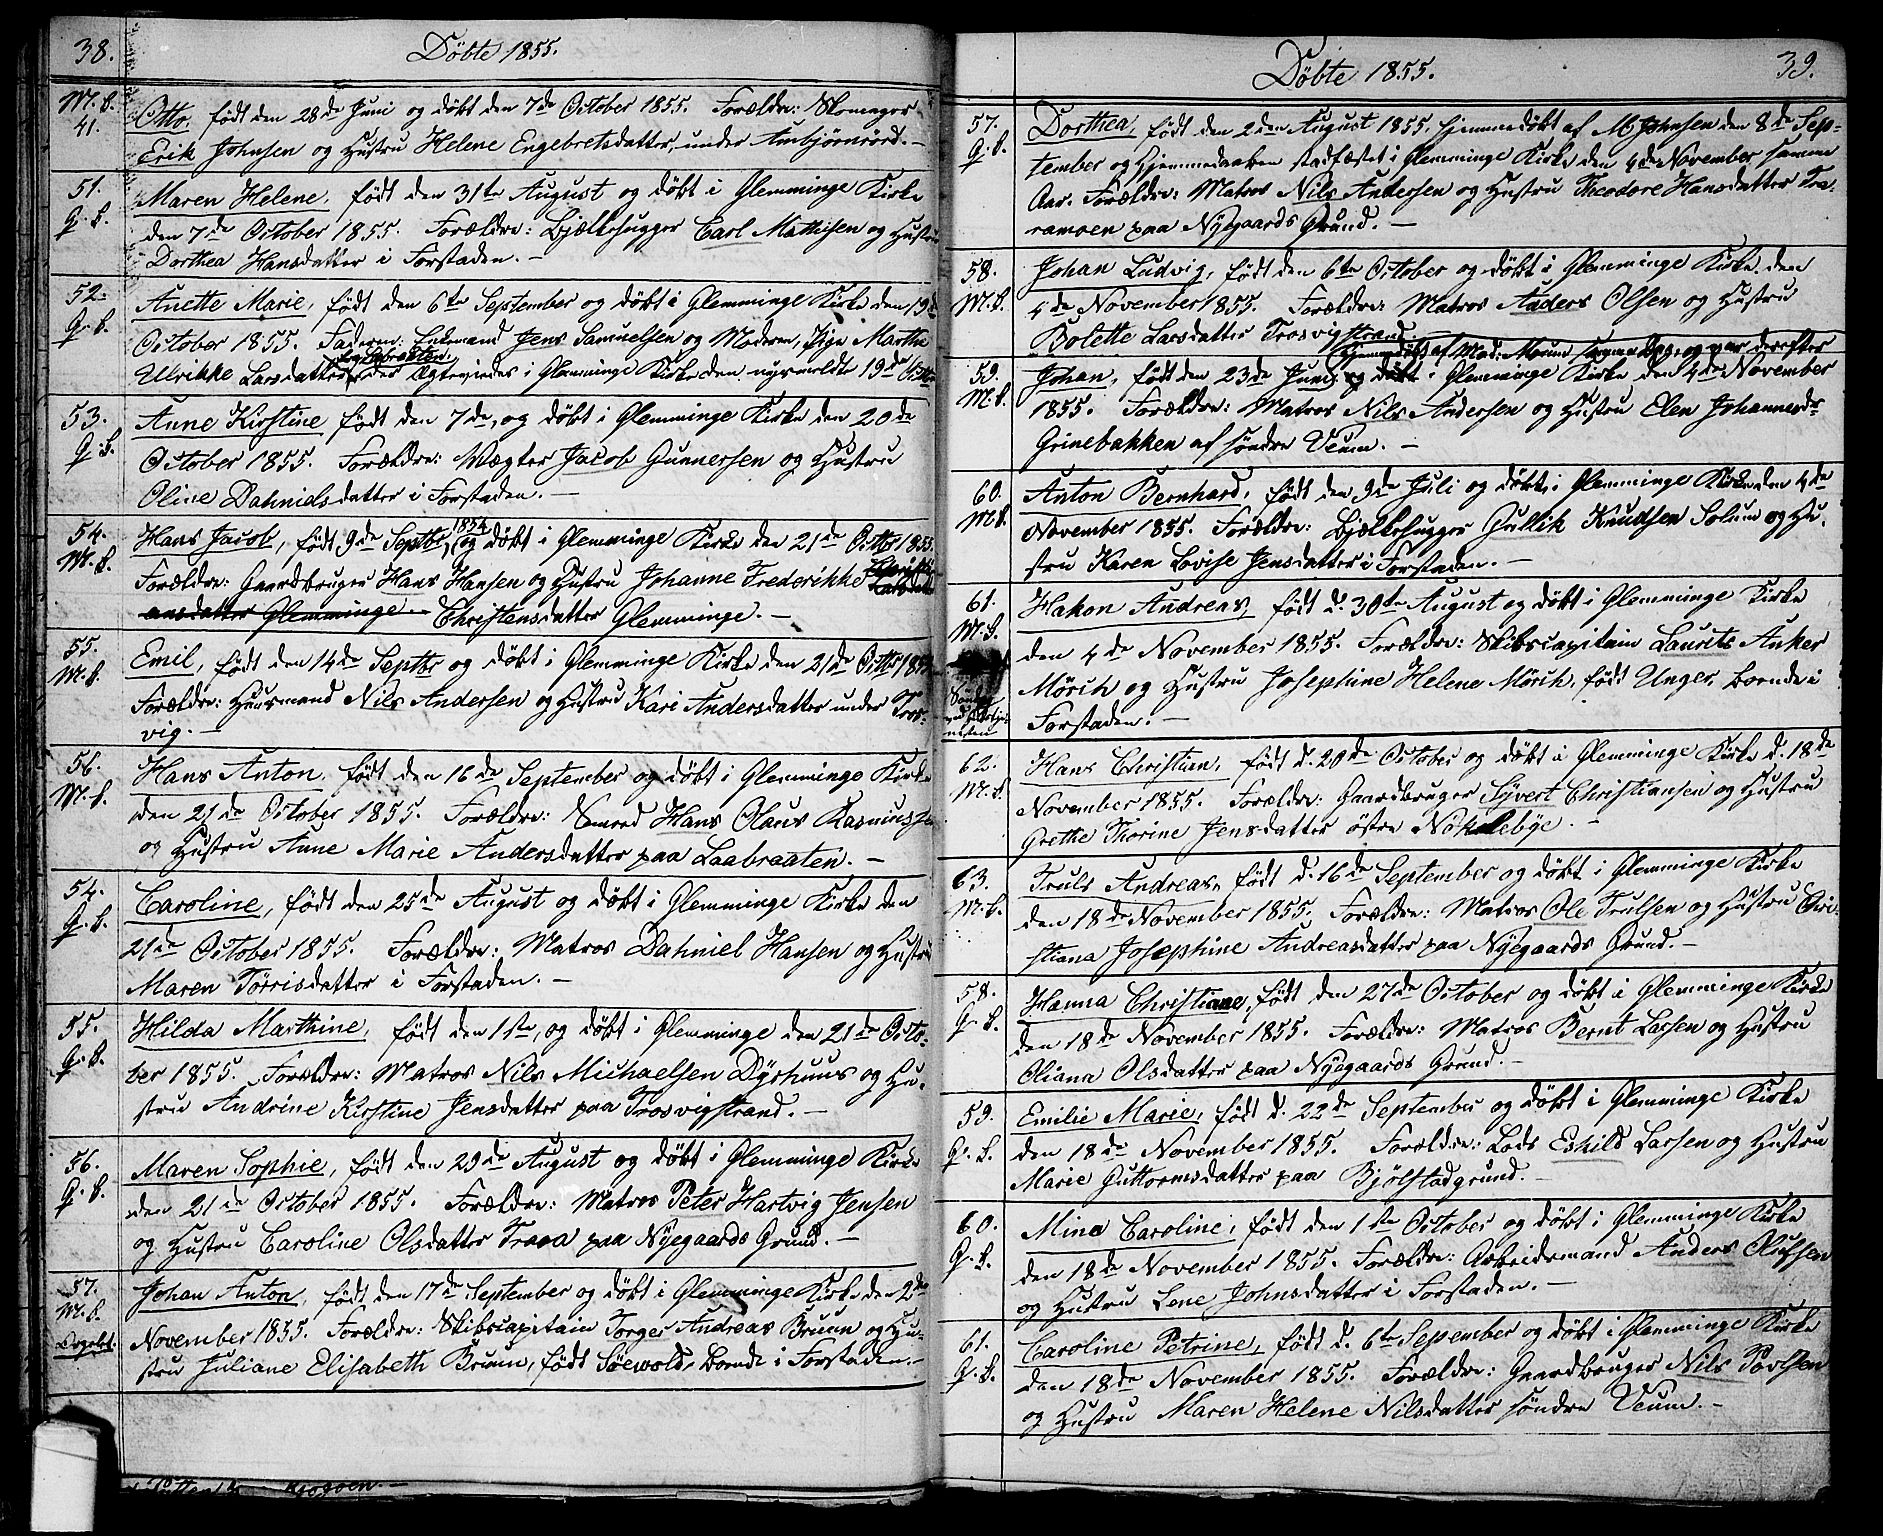 38.
Döbte 1855.
M. B.
41.
Otto, født den 28de Juni og døbt den 7de October 1855. Forældre: Skomager
Erik Johnsen og Hustru Helene Engebretsdatter, under Ambjørnrød. –
51.
P. B.
Maren Helene, født den 31te August og døbt i Glemminge Kirke
den 7de October 1855. Forældre: Bjælkehugger Carl Mathisen og Hustru
Dorthea Hansdatter i Forstaden. –
52.
P. B.
Anette Marie, født den 6te September og døbt i Glemminge Kirke den 19de
October 1855. Faderen: Enkemand Jens Samuelsen og Moderen, Pige Marthe
Ullrikke Larsdatter, der ægteviedes i Glemminge Kirke den nysmeldte 19de Octbr
53.
P. B.
Anne Kirstine født den 7de, og døbt i Glemminge Kirke den 20de
October 1855. Forældre: Vægter Jacob Gunnersen og Hustru
Oline Dahnielsdatter i Forstaden. –
54.
M. B.
Hans Jacob, født 9de Septbr 1854, og døbt i Glemminge Kirke den 21de Octbr 1855.
Forældre: Gaardbruger Hans Hansen og Hustru Johanne Frederikke
ansdatter Glemminge. – Christensdatter Glemminge. –
55.
M. B.
Emil, født den 14de Septbr og døbt i Glemminge Kirke den 21de Octbr 1855.
Forældre: Huusmand Nils Andersen og Hustru Kari Andersdatter under Tros-
vig. –
56.
M. B.
Hans Anton, født den 16de September og døbt i Glemminge Kirke
den 21de October 1855. Forældre: Hans Olaus Rasmussen
og Hustru Anne Marie Andersdatter paa Laabraaten. –
54.
P. B.
Caroline, født den 25de August og døbt i Glemminge Kirke den
21de October 1855. Forældre: Matros Dahniel Hansen og Hustru
Maren Tørrisdatter i Forstaden. –
55.
P. B.
Hilda Marthine, født den 1ste, og døbt i Glemminge den 21de Octo-
ber 1855. Forældre: Matros Nils Michaelsen Dyrhuus og Hu-
stru Andrine Kirstine Jensdatter paa Trosvigstrand. –
56.
P. B.
Maren Sophie, født den 29de August og døbt i Glemminge Kirke
den 21de October 1855. Forældre: Matros Peter Hartvig Jensen
og Hustru Caroline Olsdatter Trara paa Nyegaards Grund. –
57.
M. B.
Johan Anton, født den 17de September og døbt i Glemminge Kirke den 2den
November 1855. Forældre: Skibscapitain Torger Andreas Bruun og Hu-
stru Juliane Elisabeth Bruun, født Söewold, boende i Forstaden. –
Döbte 1855.
39.
57.
P. B.
Dorthea, født den 2den August 1855, hjemmedøbt af M Johnsen den 8de Sep-
tember og Hjemmedaaben stadfæstet i Glemminge Kirke den 4de November samme
Aar. Forældre: Matros Nils Andersen og Hustru Theodore Hansdatter Tra-
paa Nyegaards Grund. –
58.
M. B.
Johan Ludvig, født den 6te October og døbt i Glemminge Kirke den
4de November 1855. Forældre: Matros Anders Olsen og Hustru
Bolette Larsdatter Trosvigstrand
hjemmedøbt af Mad: Morund samme Dag, og var derefter
59.
M. B.
Johan, født den 23de Juni, og døbt i Glemminge Kirke den 4de November
1855. Forældre: Matros Nils Andersen og Hustru Elen Johannesdr
Grinebakken af søndre Veum. –
60.
M. B.
Anton Bernhard, født den 9de Juli og døbt i Glemminge Kirke den 4de
November 1855. Forældre: Bjælkehugger Gullik Knudsen Solum og Hu-
stru Karen Lovise Jensdatter i Forstaden. –
61.
M. B.
Hakon Andreas, født d. 30te August og døbt i Glemminge Kirke
den 4de November 1855. Forældre: Skibscapitain Laurits Anker
Mörch og Hustru Josephine Helene Mörch, født Unger, boende i
Forstaden. –
62.
M. B.
Hans Christian, født d. 20de October og døbt i Glemminge Kirke d. 18de
November 1855. Forældre: Gaardbruger Syvert Christiansen og Hustru
Grethe Thorine Jensdatter östre Nökelebye. –
63.
M. B.
Truls Andreas, født d. 16de September og døbt i Glemminge Kirke
den 18de November 1855. Forældre: Matros Ole Trulsen og Hustru Chri-
stiana Josephine Andreasdatter paa Nyegaards Grund. –
58.
P. B.
Hanna Christiane, født den 27de October og døbt i Glemminge Kirke
den 18de November 1855. Forældre: Matros Bernt Larsen og Hustru
Oliana Olsdatter paa Nyegaards Grund. –
59.
P. B.
Emilie Marie, født d. 22de September og døbt i Glemminge Kirke
den 18de November 1855. Forældre: Lods Eskild Larsen og Hustru
Marie Guttormsdatter paa Bjölstadgrund. –
60.
P. B.
Mina Caroline, født den 1ste October og døbt i Glemminge Kirke
den 18de November 1855. Forældre: Arbeidsmand Anders Olufsen
og Hustru Lene Johnsdatter i Forstaden. –
61.
P. B.
Caroline Petrine, født d. 6te September og døbt i Glemminge Kirke
den 18de November 1855. Forældre: Gaardbruger Nils Povlsen
og Hustru Maren Helene Nilsdatter søndre Veum. –